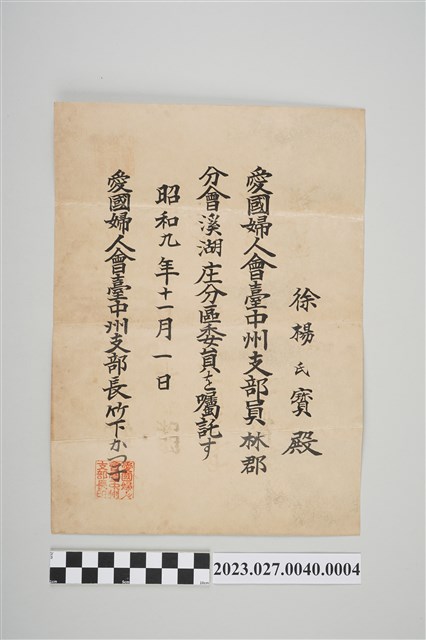 徐楊氏寳殿
愛國婦人會臺中州支部員林郡
分會溪湖庄分區委員を囑託す
昭和九年十一月一日
愛國婦人會臺中州支部長竹下かつ子
愛國婦人會臺中州支部長印
2023.027.0040.0004